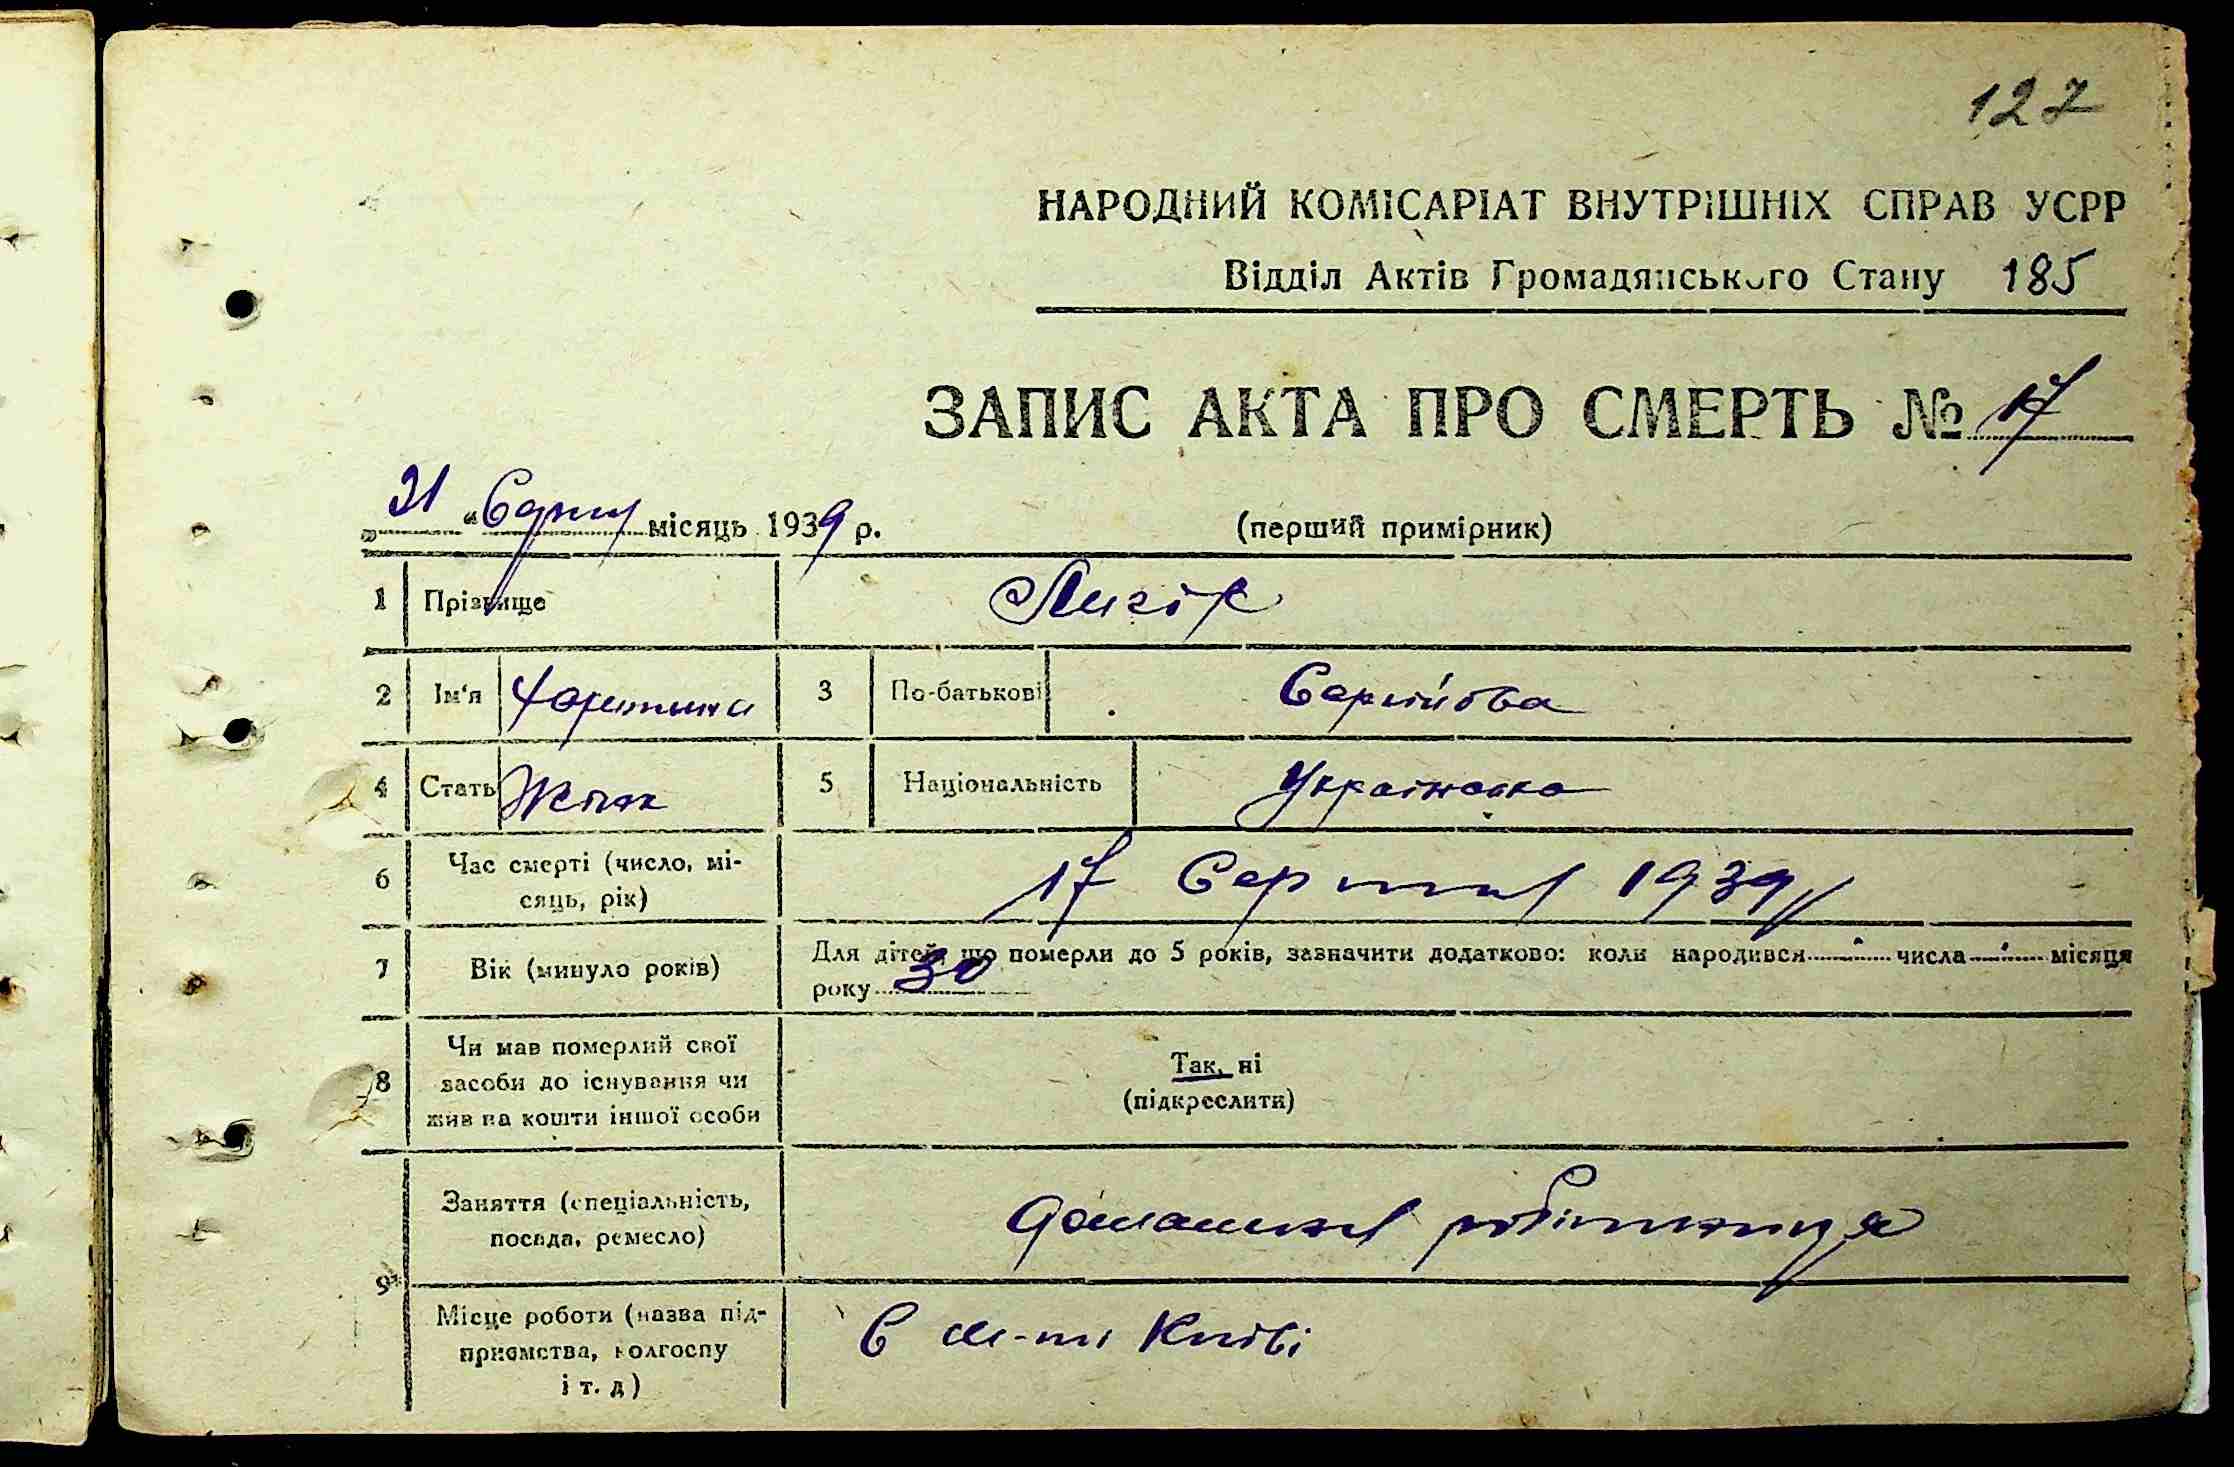 127
НАРОДНИЙ КОМІСАРІАТ ВНУТРІШНІХ СПРАВ УСРР
Відділ Актів Громадянського Стану 185
ЗАПИС АКТА ПРО СМЕРТЬ № 17
„31“ місяць 1939 р. (перший примірник)
1 Прізвище
2 Ім'я Харитина 3 По-батькові Сергійова
4 Стать Жіноч 5 Національність Українка
6 Час смерті (число, мі-
сяць, рік) 17 Серпня 1939
7 Вік (минуло років) Для дітей, що померли до 5 років, зазначити додатково: коли народився числа місяця
року 30
8 Чи мав померлий свої
засоби до існування чи
жив на кошти іншої особи
Так, ні
(підкреслити)
9 Заняття (спеціальність,
посада, ремесло) домашня робітниця
Місце роботи (назва під-
приємства, колгоспу
і т. д) В м-ті Києві